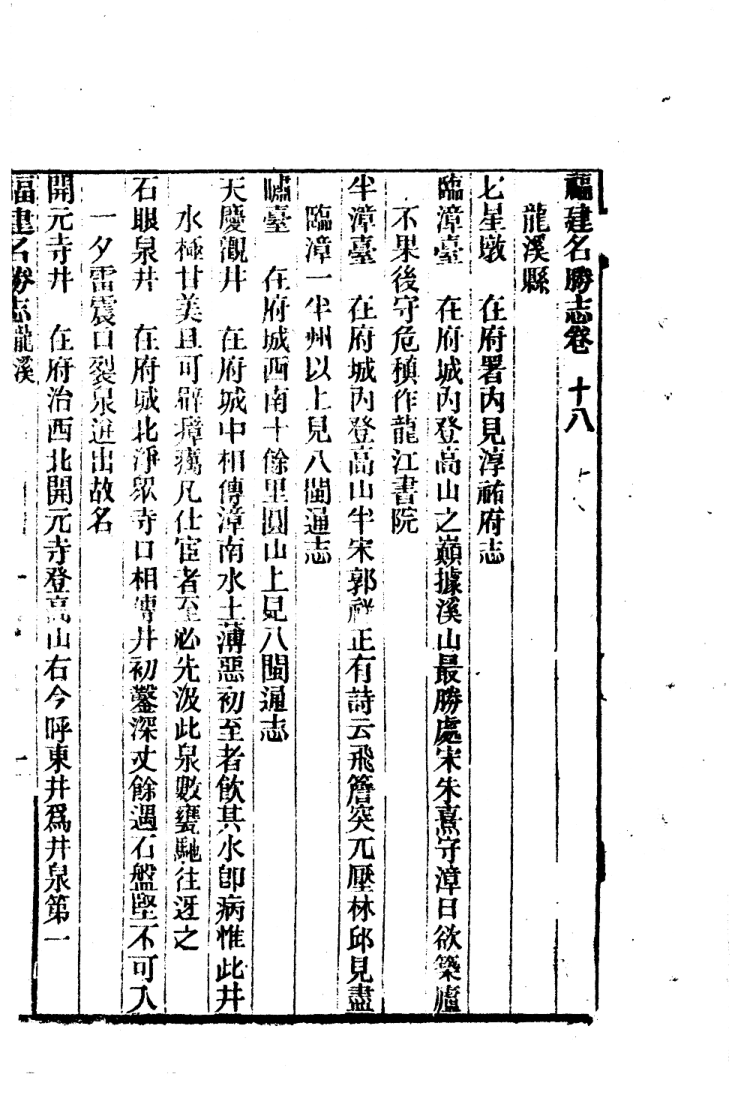 福建名勝志卷 十八
龍溪縣
七星墩 在府署內見淳祐府志
臨漳臺 在府城內登高山之巔據溪山最勝處宋朱熹守漳日欲築廬
不果後守危稹作龍江書院
半漳臺 在府城內登高山半宋郭祥正有詩云飛簷突兀壓林邱見盡
臨漳一半州以上見八閩通志
嘯臺 在府城西南十餘里圓山上見八閩通志
天慶觀井 在府城中相傳漳南水土薄惡初至者飲其水卽病惟此井
水極甘美且可辟瘴癘凡仕宦者至必先汲此泉數甕馳往迓之
石眼泉井 在府城北淨眾寺口相傳井初鑿深丈餘遇石盤堅不可入
一夕雷震口裂泉迸出故名
開元寺井 在府治西北開元寺登高山右今呼東井爲井泉第一
福建名勝志龍溪